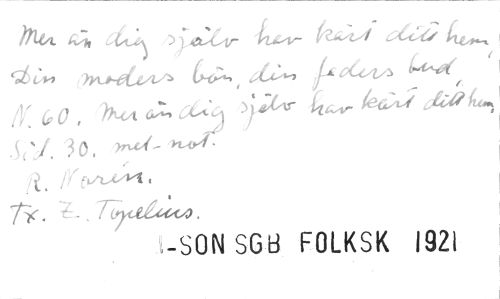 Mer än dig själv hav kärt ditt hem,
Din moders bön, din faders bud,
N. 60. Mer än dig själv hav kärt ditt hem,
Sid. 30. mel-not.
R. Norén.
Tx. Z. Topelius.
-SON SGB FOLKSK 1921